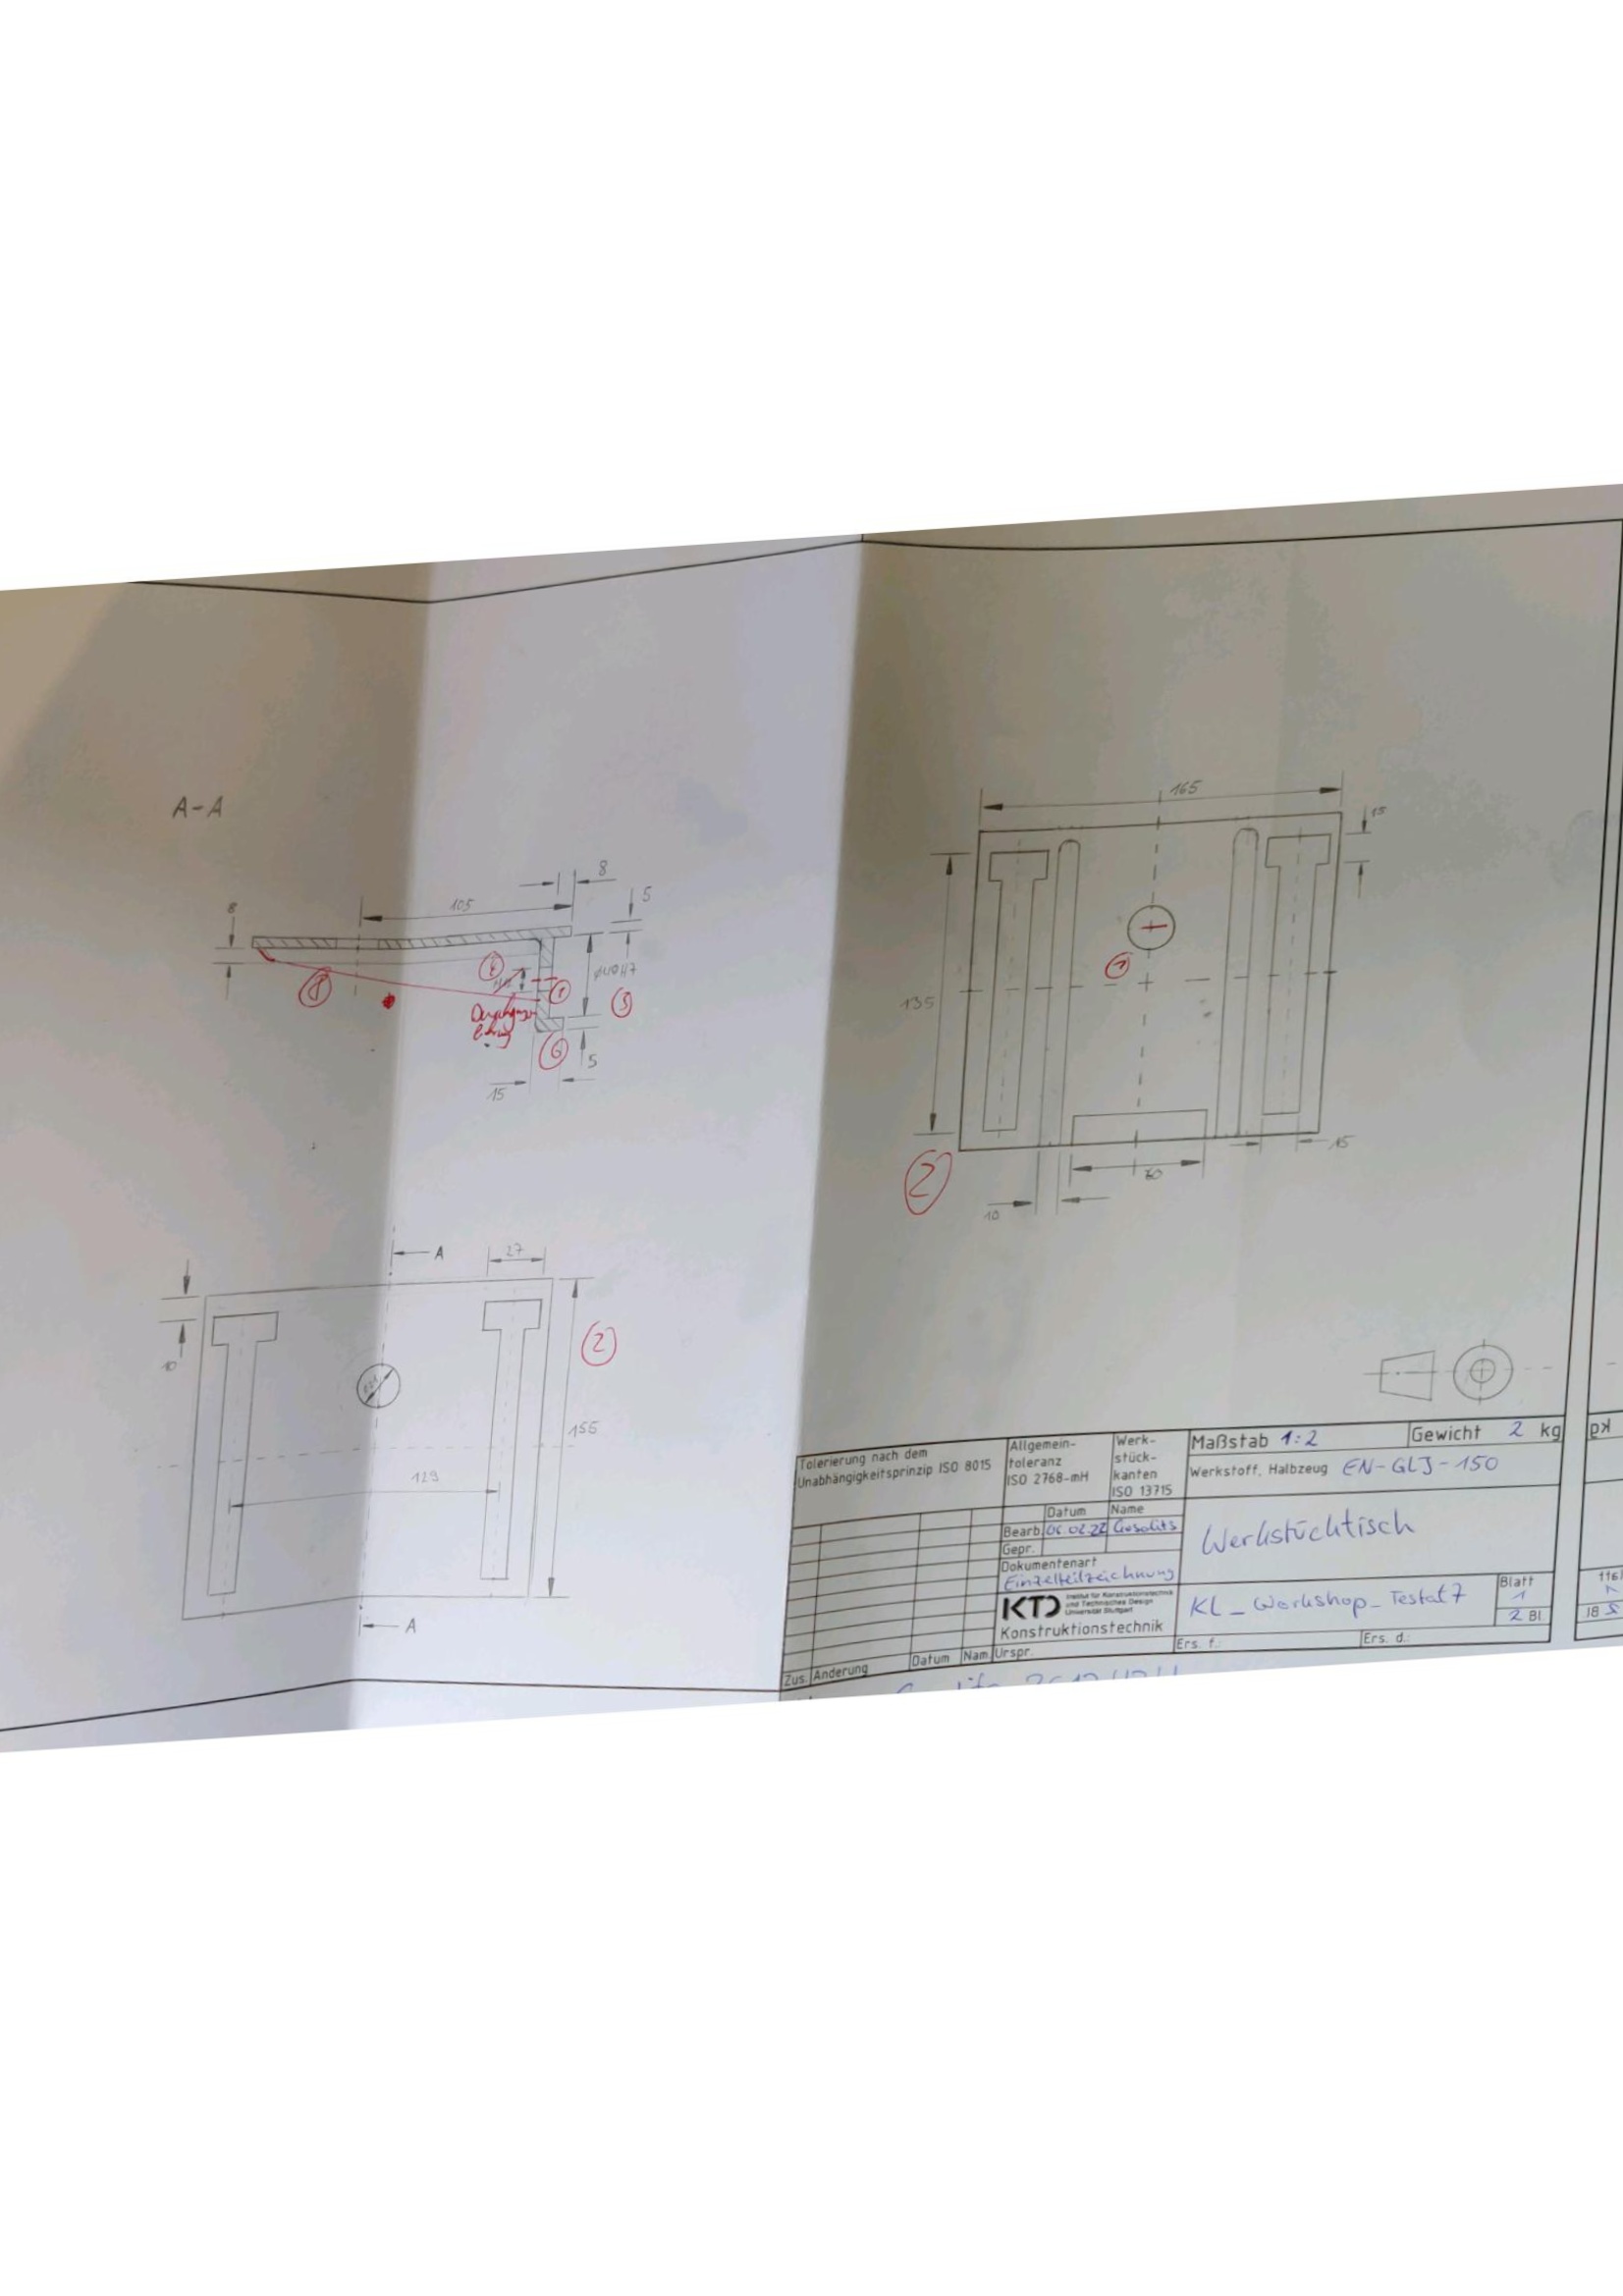 A-A
8
105
8
5
ø40H7
8
8
1
3
6
5
15
165
15
1
135
2
60
15
10
A
27
10
2
155
129
A
Tolerierung nach dem
Unabhängigkeitsprinzip ISO 8015
Allgemein-
toleranz
ISO 2768-mH
Werk-
stück-
kanten
ISO 13715
Maßstab 1:2
Gewicht 2 kg
Werkstoff, Halbzeug EN-GLJ-150
Datum Name
Bearb.
Gepr.
Werkstücktisch
Dokumentenart
Einzelteilzeichnung
KTD
Institut für Konstruktionstechnik
und Technisches Design
Universität Stuttgart
Konstruktionstechnik
KL_Workshop_Testat7
Blatt
1
2 Bl.
Zus. Änderung Datum Nam. Urspr. Ers. f.: Ers. d.: